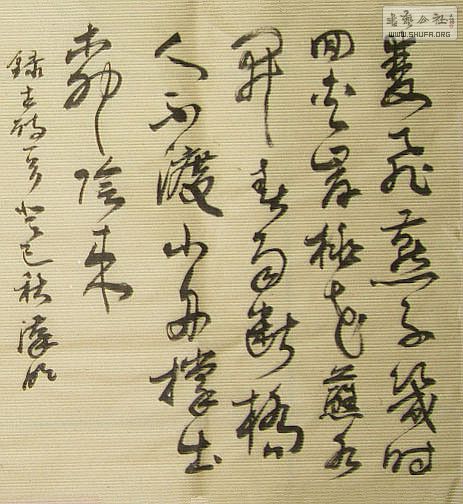 书艺公社
WWW.SHUFA.ORG
雙飛燕子幾时
回夾岸桃花蘸水
開春雨斷橋
人不渡小舟撐出
柳陰来
錄古詩 癸巳秋